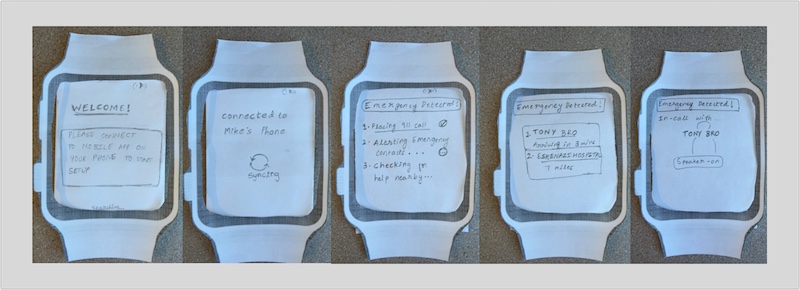 WELCOME!
PLEASE CONNECT
TO MOBILE APP ON
YOUR PHONE TO START
SETUP
connected to
Mike's Phone
syncing
Emergency Detected!
1. Placing 911 call
2. Alerting Emergency
contacts...
3. Checking for
help nearby...
Emergency Detected!
1. TONY BRO
Arriving in 3 min
2. ESKENAZI HOSPITAL
7 miles
Emergency Detected!
In-call with...
TONY BRO
Speaker-on